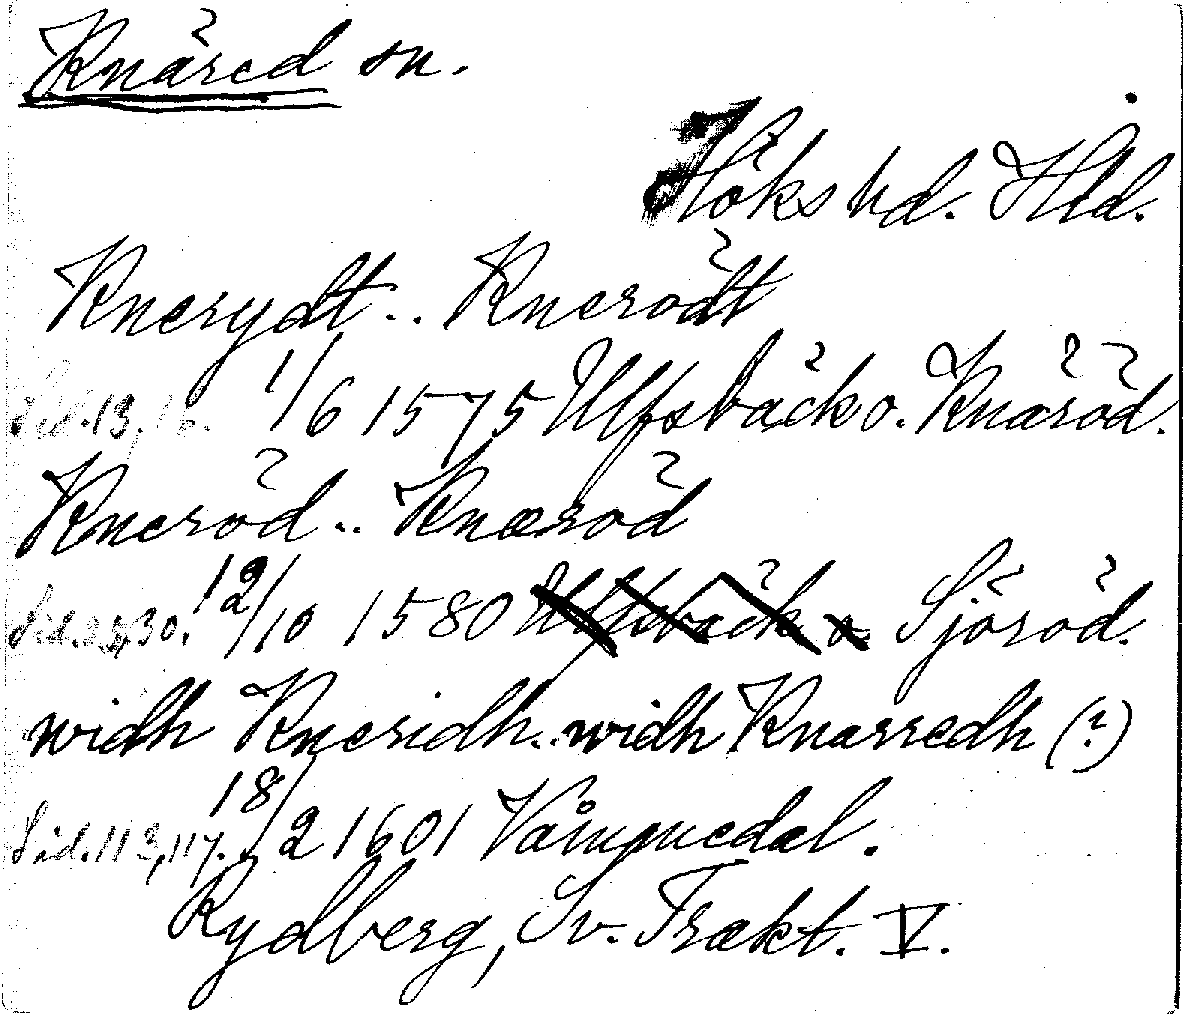 Knäred sn.
Höks hd. Hld.
Knerydt.. Knerödt
Sid. 13, 1/6 1575 Ulfsbäck o. Knæröd.
Kneröd.. Knæröd
Sid. 25, 30. 12/10 1580 Ulfsbäck o. Sjöröd.
widh Kneridh.. widh Knærredh (?)
Sid. 113, 117. 18/2 1601 Vämmedal.
Rydberg, Sv. Trakt. V.